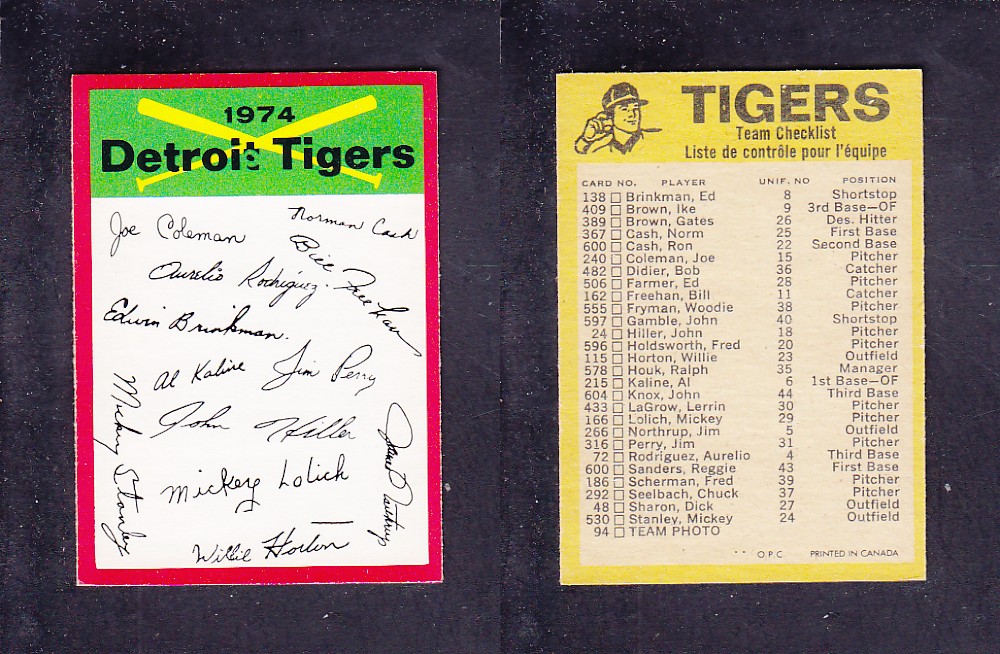 1974
Detroit Tigers
Joe Coleman
Norman Cash
Bill Freehan
Aurelio Rodriguez.
Edwin Brinkman.
Al Kaline
Jim Perry
Mickey Stanley
John Hiller
James Northrup
Mickey Lolich
Willie Horton
TIGERS
Team Checklist
Liste de contrôle pour l'équipe
CARD NO. PLAYER UNIF. NO POSITION
138 □ Brinkman, Ed 8 Shortstop
409 □ Brown, Ike 9 3rd Base—OF
389 □ Brown, Gates 26 Des. Hitter
367 □ Cash, Norm 25 First Base
600 □ Cash, Ron 22 Second Base
240 □ Coleman, Joe 15 Pitcher
482 □ Didier, Bob 36 Catcher
506 □ Farmer, Ed 28 Pitcher
162 □ Freehan, Bill 11 Catcher
555 □ Fryman, Woodie 38 Pitcher
597 □ Gamble, John 40 Shortstop
24 □ Hiller, John 18 Pitcher
596 □ Holdsworth, Fred 20 Pitcher
115 □ Horton, Willie 23 Outfield
578 □ Houk, Ralph 35 Manager
215 □ Kaline, Al 6 1st Base—OF
604 □ Knox, John 44 Third Base
433 □ LaGrow, Lerrin 30 Pitcher
166 □ Lolich, Mickey 29 Pitcher
266 □ Northrup, Jim 5 Outfield
316 □ Perry, Jim 31 Pitcher
72 □ Rodriguez, Aurelio 4 Third Base
600 □ Sanders, Reggie 43 First Base
186 □ Scherman, Fred 39 Pitcher
292 □ Seelbach, Chuck 37 Pitcher
48 □ Sharon, Dick 27 Outfield
530 □ Stanley, Mickey 24 Outfield
94 □ TEAM PHOTO
O.P.C. PRINTED IN CANADA